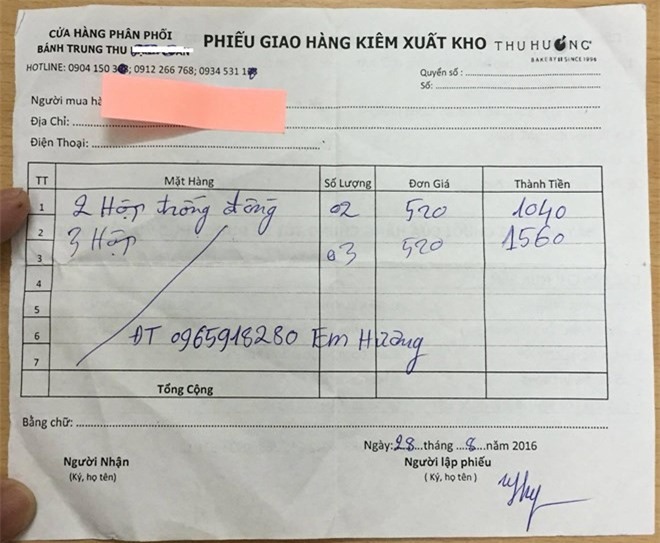 CỬA HÀNG PHÂN PHỐI
BÁNH TRUNG THU
HOTLINE: 0904 150 3; 0912 266 768; 0934 531 1
PHIẾU GIAO HÀNG KIÊM XUẤT KHO
THU HƯƠNG
BAKERY SINCE 1996
Quyển số :
Số:
Người mua hà
Địa Chỉ:
Điện Thoại:
TT Mặt Hàng Số Lượng Đơn Giá Thành Tiền
1 2 Hộp trống đồng 02 520 1040
2 3 Hộp 03 520 1560
3
4
5
6 ĐT 0965918280 Em Hương
7
Tổng Cộng
Bằng chữ:
Ngày: 28 tháng 8 năm 2016
Người Nhận Người lập phiếu
(Ký, họ tên) ( Ký, họ tên )